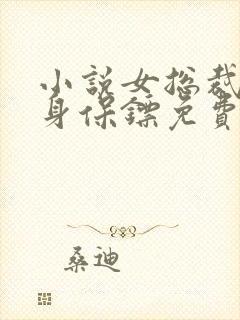 小説女総裁
身保鏢免費
桑迪